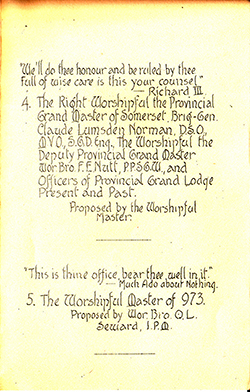 "We'll do thee honour and be ruled by thee
full of wise care is this your counsel."
— Richard III.
4. The Right Worshipful the Provincial
Grand Master of Somerset, Brig-Gen.
Claude Lumsden Norman, D.S.O.,
M.V.O., S.G.D. Eng., The Worshipful the
Deputy Provincial Grand Master
Wor Bro F. E. Nutt, P.P.S.G.W., and
Officers of Provincial Grand Lodge
Present and Past.
Proposed by the Worshipful
Master.
"This is thine office, bear thee well in it."
— Much Ado about Nothing.
5. The Worshipful Master of 973.
Proposed by Wor. Bro. O. L.
Seward, I.P.M.